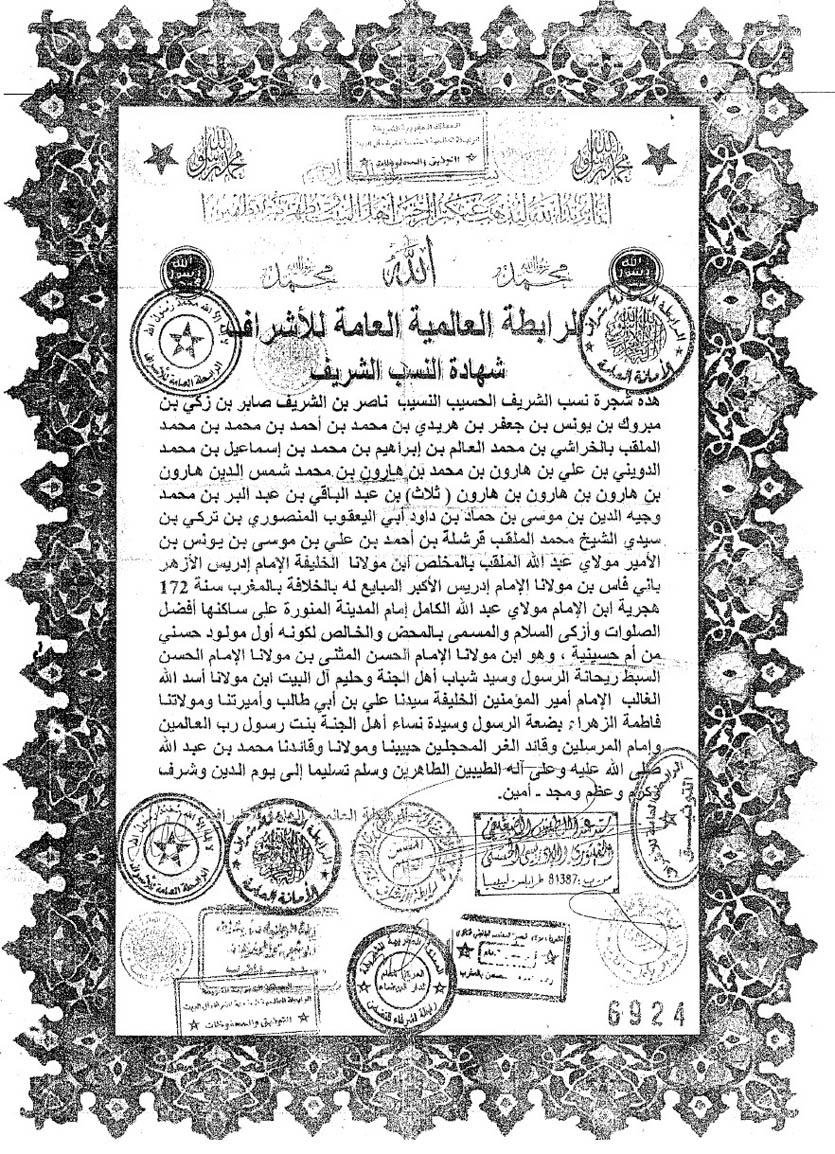 محمد رسول الله
محمد رسول الله
التوثيق والمحفوظات
إنما يريد الله ليذهب عنكم الرجس أهل البيت ويطهركم تطهيرا
محمد رسول الله
الله
محمد رسول الله
الله رسول محمد
الله رسول محمد
الرابطة العالمية العامة للأشراف
لا إله إلا الله محمد رسول الله
الرابطة العامة للأشراف
الأمانة العامة
شهادة النسب الشريف
هذه شجرة نسب الشريف الحسيب النسيب ناصر بن الشريف صابر بن زكي بن
مبروك بن يونس بن جعفر بن هريدي بن محمد بن أحمد بن محمد بن محمد
الملقب بالخراشي بن محمد العالم بن إبراهيم بن محمد بن إسماعيل بن محمد
الدويني بن علي بن هارون بن محمد بن هارون بن محمد شمس الدين هارون
بن هارون بن هارون بن هارون ( ثلاث) بن عبد الباقي بن عبد البر بن محمد
وجيه الدين بن موسى بن حماد بن داود أبي اليعقوب المنصوري بن تركي بن
سيدي الشيخ محمد الملقب قرشلة بن أحمد بن علي بن موسى بن يونس بن
الأمير مولاي عبد الله الملقب بالمخلص ابن مولانا الخليفة الإمام إدريس الأزهر
باني فاس بن مولانا الإمام إدريس الأكبر المبايع له بالخلافة بالمغرب سنة 172
هجرية ابن الإمام مولاي عبد الله الكامل إمام المدينة المنورة على ساكنها أفضل
الصلوات وأزكى السلام والمسمى بالمحض والخالص لكونه أول مولود حسني
من أم حسينية ، وهو ابن مولانا الإمام الحسن المثنى بن مولانا الإمام الحسن
السبط ريحانة الرسول وسيد شباب أهل الجنة وحليم آل البيت ابن مولانا أسد الله
الغالب الإمام أمير المؤمنين الخليفة سيدنا علي بن أبي طالب وأميرتنا ومولاتنا
فاطمة الزهراء بضعة الرسول وسيدة نساء أهل الجنة بنت رسول رب العالمين
وإمام المرسلين وقائد الغر المحجلين حبيبنا ومولانا وقائدنا محمد بن عبد الله
صلى الله عليه وعلى آله الطيبين الطاهرين وسلم تسليما إلى يوم الدين وشرف
وكرم وعظم ومجد - أمين.
لا إله إلا الله محمد رسول الله
الرابطة العامة للأشراف
الأمانة العامة
ص ب :81387 طرابلس ليبيا
التوثيق والمحفوظات
6924